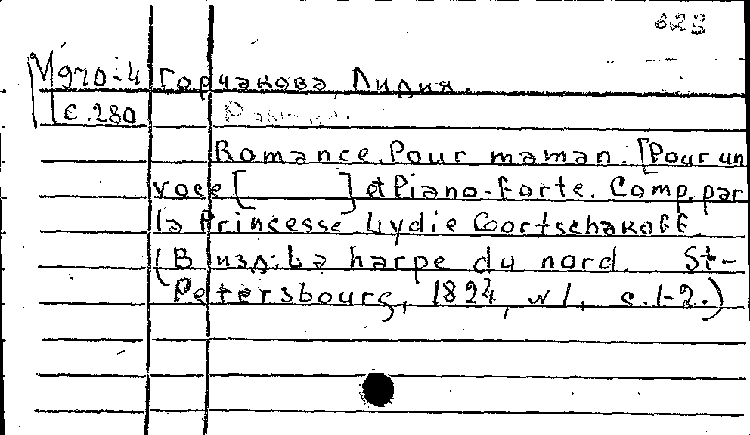 623
М 970-4 Горчакова, Лидия.
с. 280
Romance. Pour maman. [Pour un
voce [ ] et Piano-forte. Comp. par
la Princesse Lydie Gortschakoff.
(В изд: La harpe du nord. St-
Petersbourg, 1824, № 1, с. 1-2.)